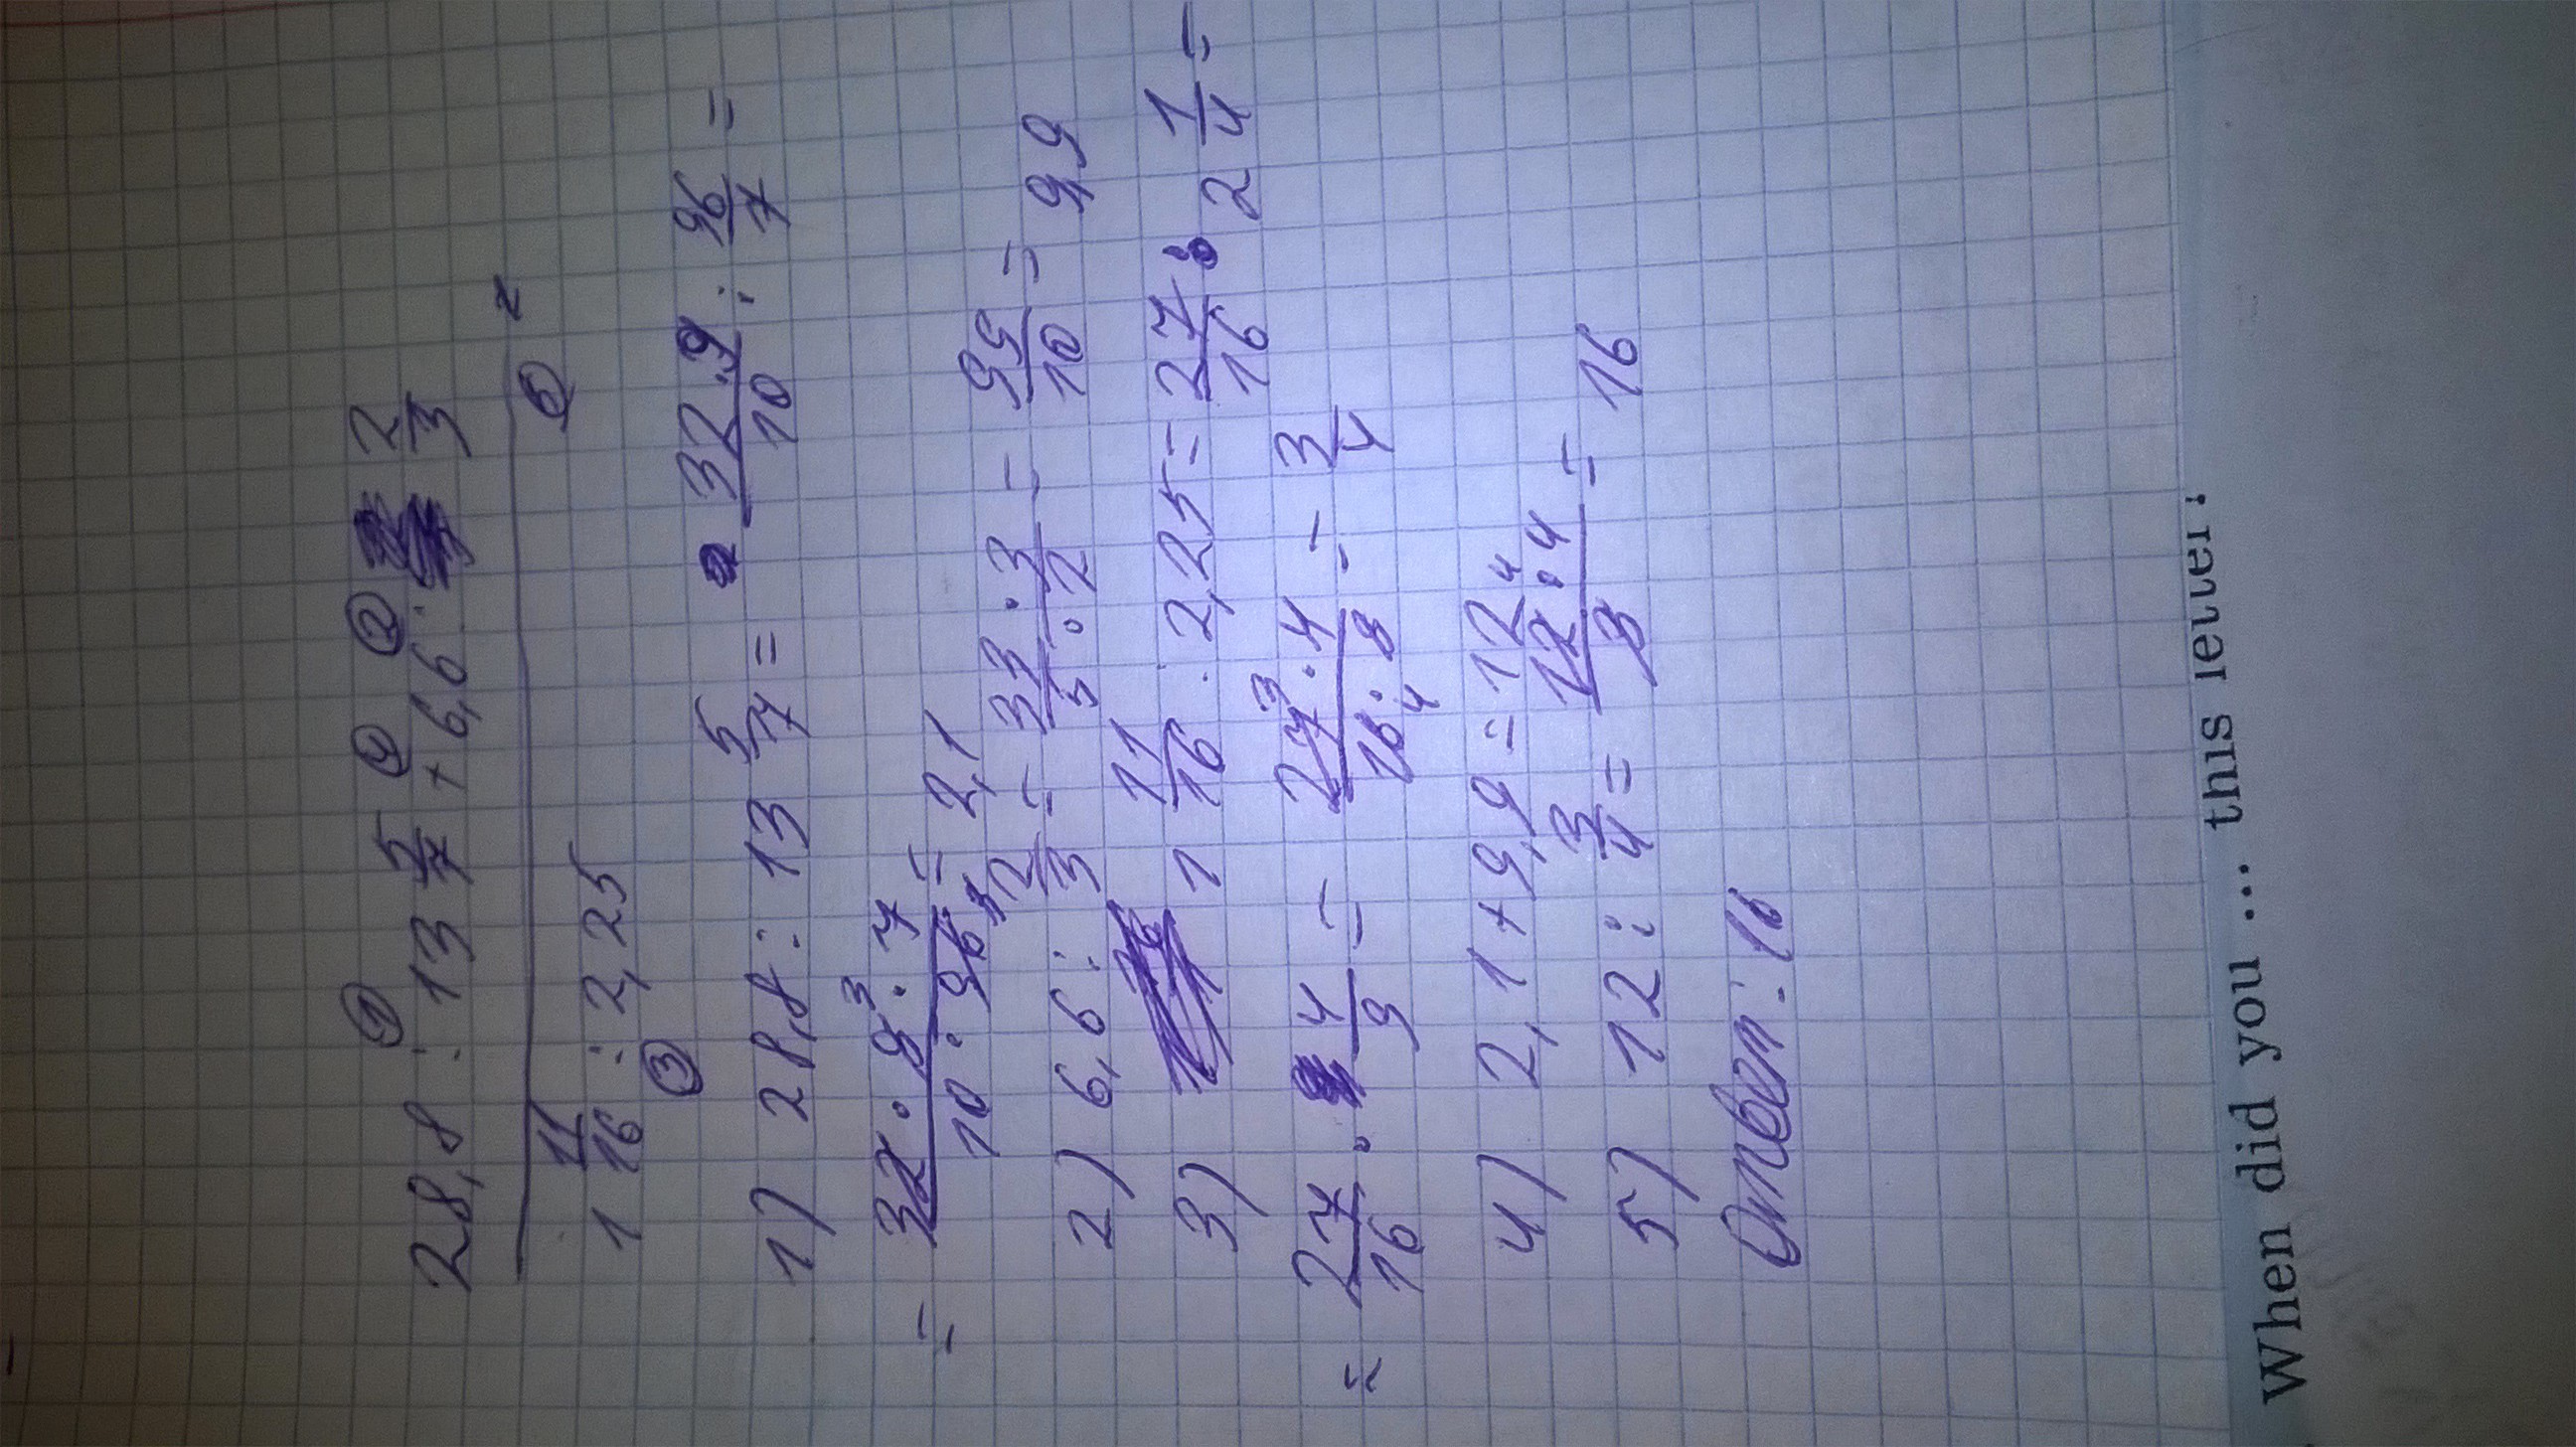 28,8 : 13 5/7 + 6,6 : 2/3
1 11/16 : 2,25
1) 28,8 : 13 5/7 = 32·9/10 : 96/7 =
= 32·9·7/10·96 = 2,1
2) 6,6 : 2/3 = 33·3/5·2 = 99/10 = 9,9
3) 1 11/16 : 2,25 = 27/16 : 2 1/4 =
= 27/16 · 4/9 = 27·4/16·9 = 3/4
4) 2,1 + 9,9 = 12
5) 12 : 3/4 = 12·4/3 = 16
Ответ: 16
When did you ... this letter?